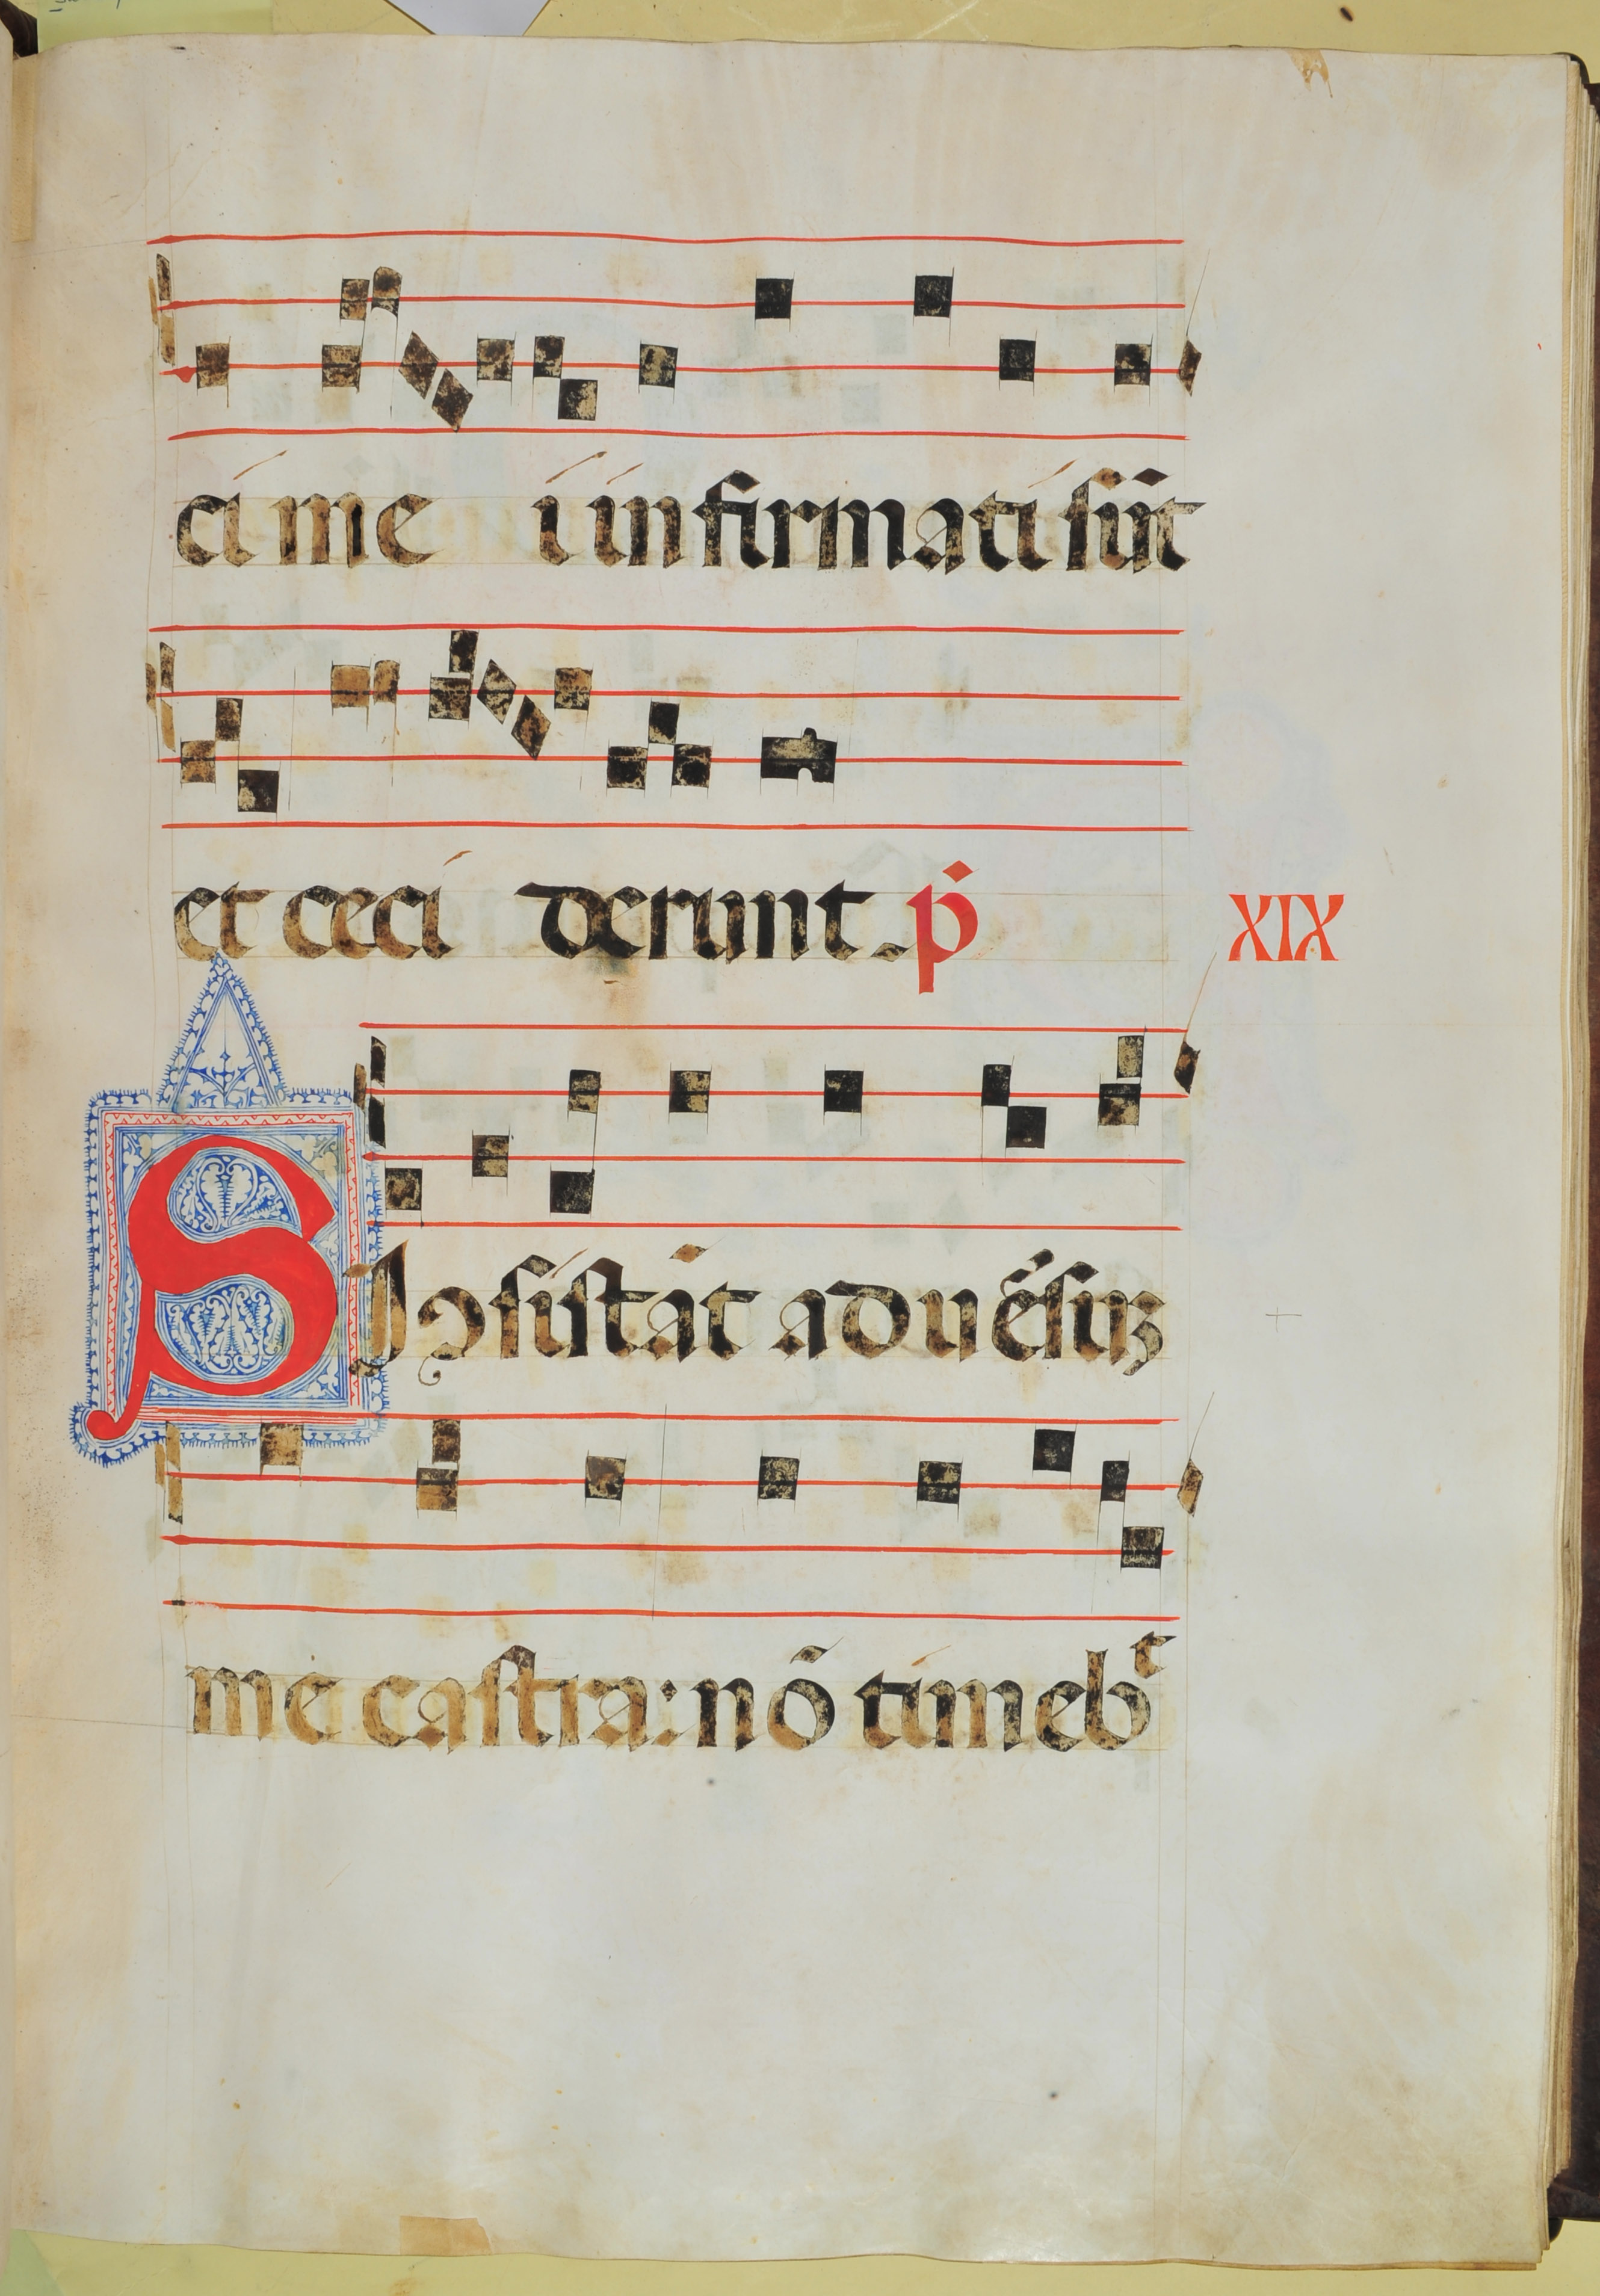 ci me i infirmati sūt
et ceci derunt. p̄
XIX
SI ↄsistāt aduēsuꝫ
me castra: nō timebᵗ